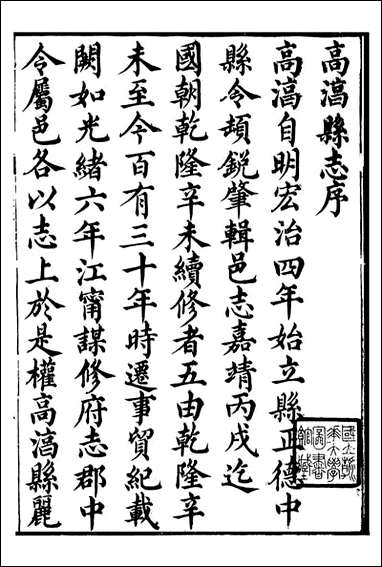 高湻縣志序
高湻自明宏治四年始立縣正德中
縣令頓銳肇輯邑志嘉靖丙戌迄
國朝乾隆辛未續修者五由乾隆辛
未至今百有三十年時遷事貿紀載
闕如光緒六年江甯謀修府志郡中
令屬邑各以志上於是權高湻縣麗
國立清
華大學
圖書
館藏